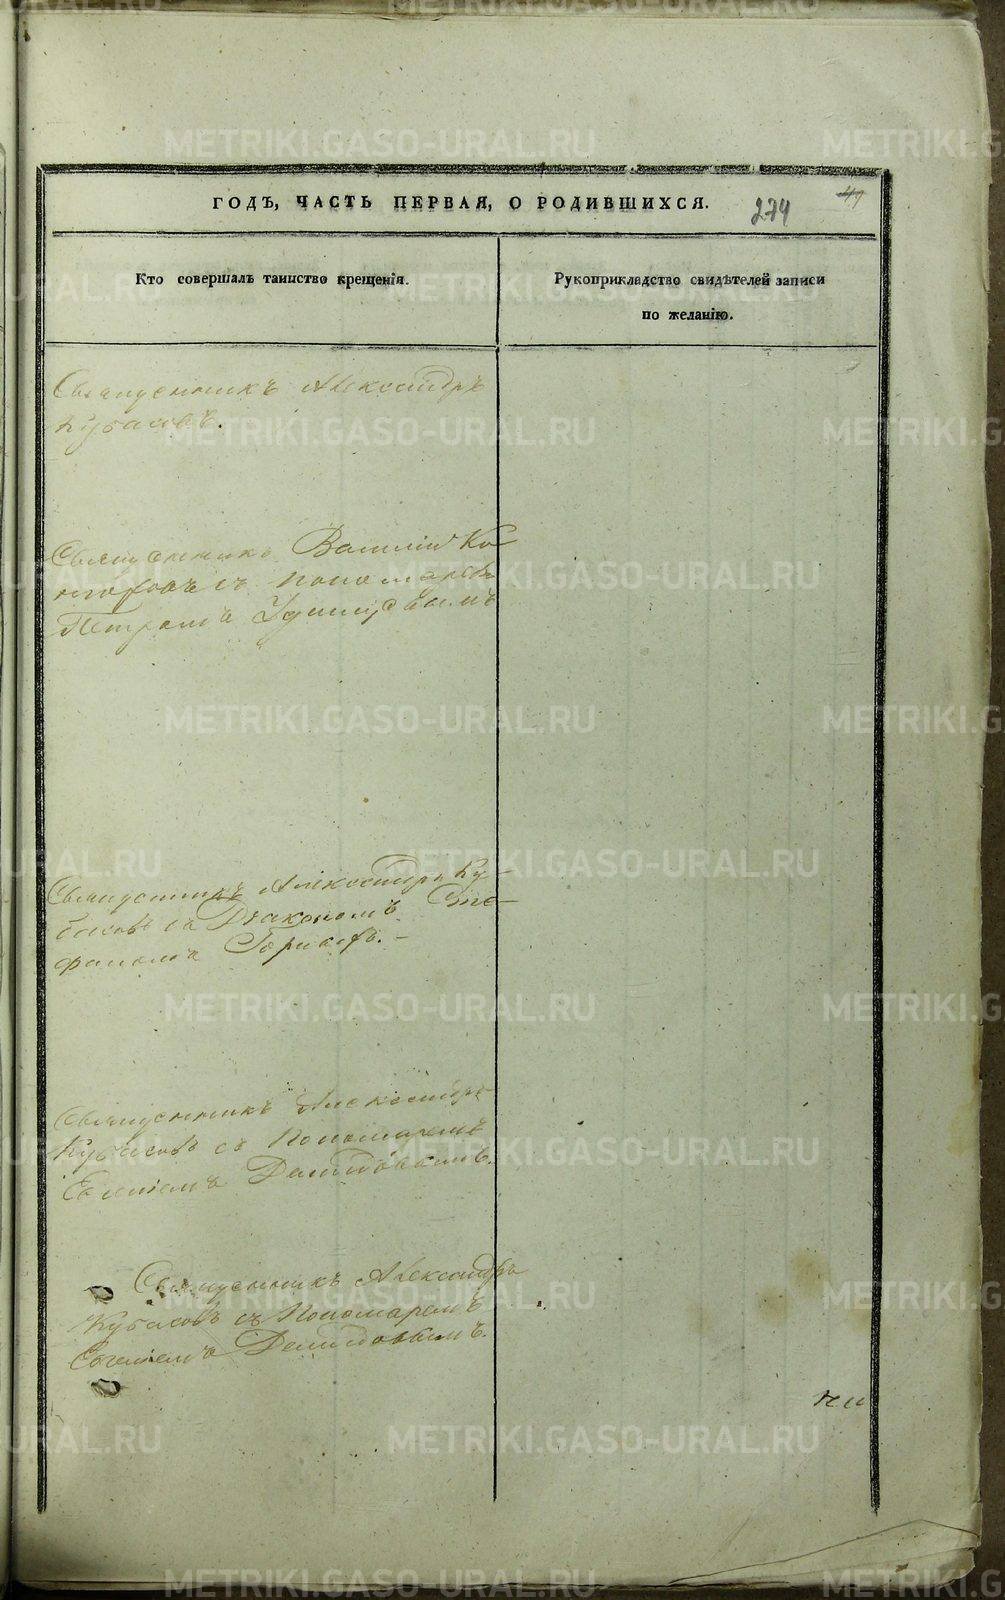 ГОДЪ, ЧАСТЬ ПЕРВАЯ, О РОДИВШИХСЯ.
274
49
Кто совершалъ таинство крещенія.
Рукоприкладство свидѣтелей записи
по желанію.
Священникъ Александръ
Кубасовъ.
Священникъ Василій
съ Пономаремъ
Петромъ
Священникъ Александръ Ку-
басовъ съ Діакономъ Сте-
фаномъ
Священникъ Александръ
Кубасовъ съ Пономаремъ
Евгеніемъ Демидовымъ.
Священникъ Александръ
Кубасовъ съ Пономаремъ
Евгеніемъ Демидовымъ.
METRIKI.GASO-URAL.RU